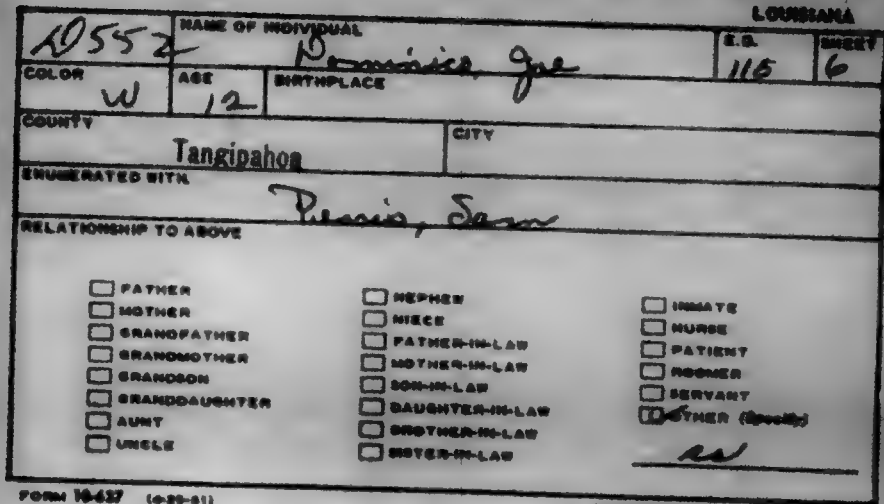 LOUISIANA
NAME OF INDIVIDUAL E.D. SHEET
D552 Dominico, Joe 115 6
COLOR AGE BIRTHPLACE
W 12
COUNTY CITY
Tangipahoa
ENUMERATED WITH
Sam
RELATIONSHIP TO ABOVE
FATHER
MOTHER
GRANDFATHER
GRANDMOTHER
GRANDSON
GRANDDAUGHTER
AUNT
UNCLE
NEPHEW
NIECE
FATHER-IN-LAW
MOTHER-IN-LAW
SON-IN-LAW
DAUGHTER-IN-LAW
BROTHER-IN-LAW
SISTER-IN-LAW
INMATE
NURSE
PATIENT
ROOMER
SERVANT
OTHER (Specify)
FORM 10-637 (4-29-61)